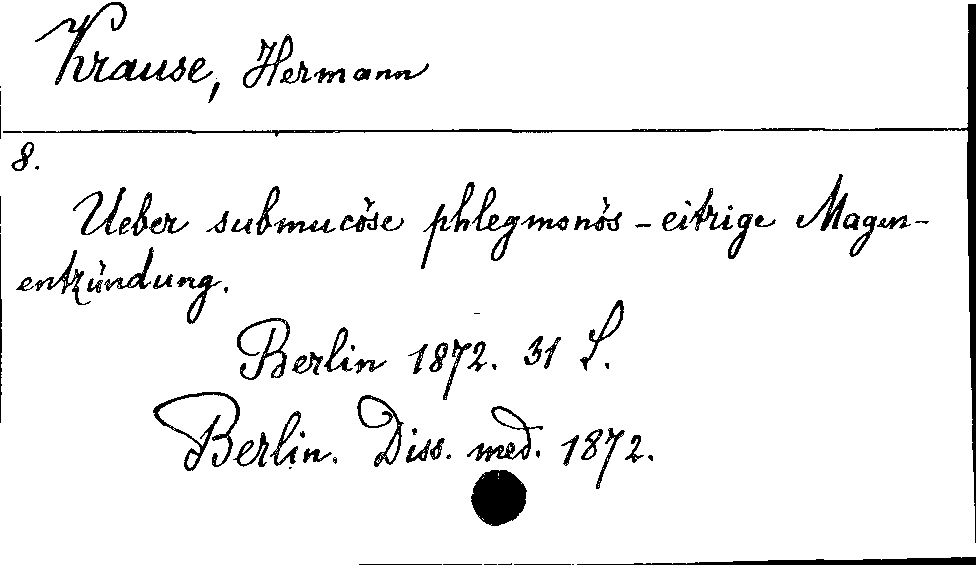 Krause, Hermann
8.
Ueber submucöse phlegmonös-eitrige Magen-
entzündung.
Berlin 1872. 31 S.
Berlin. Diss. med. 1872.